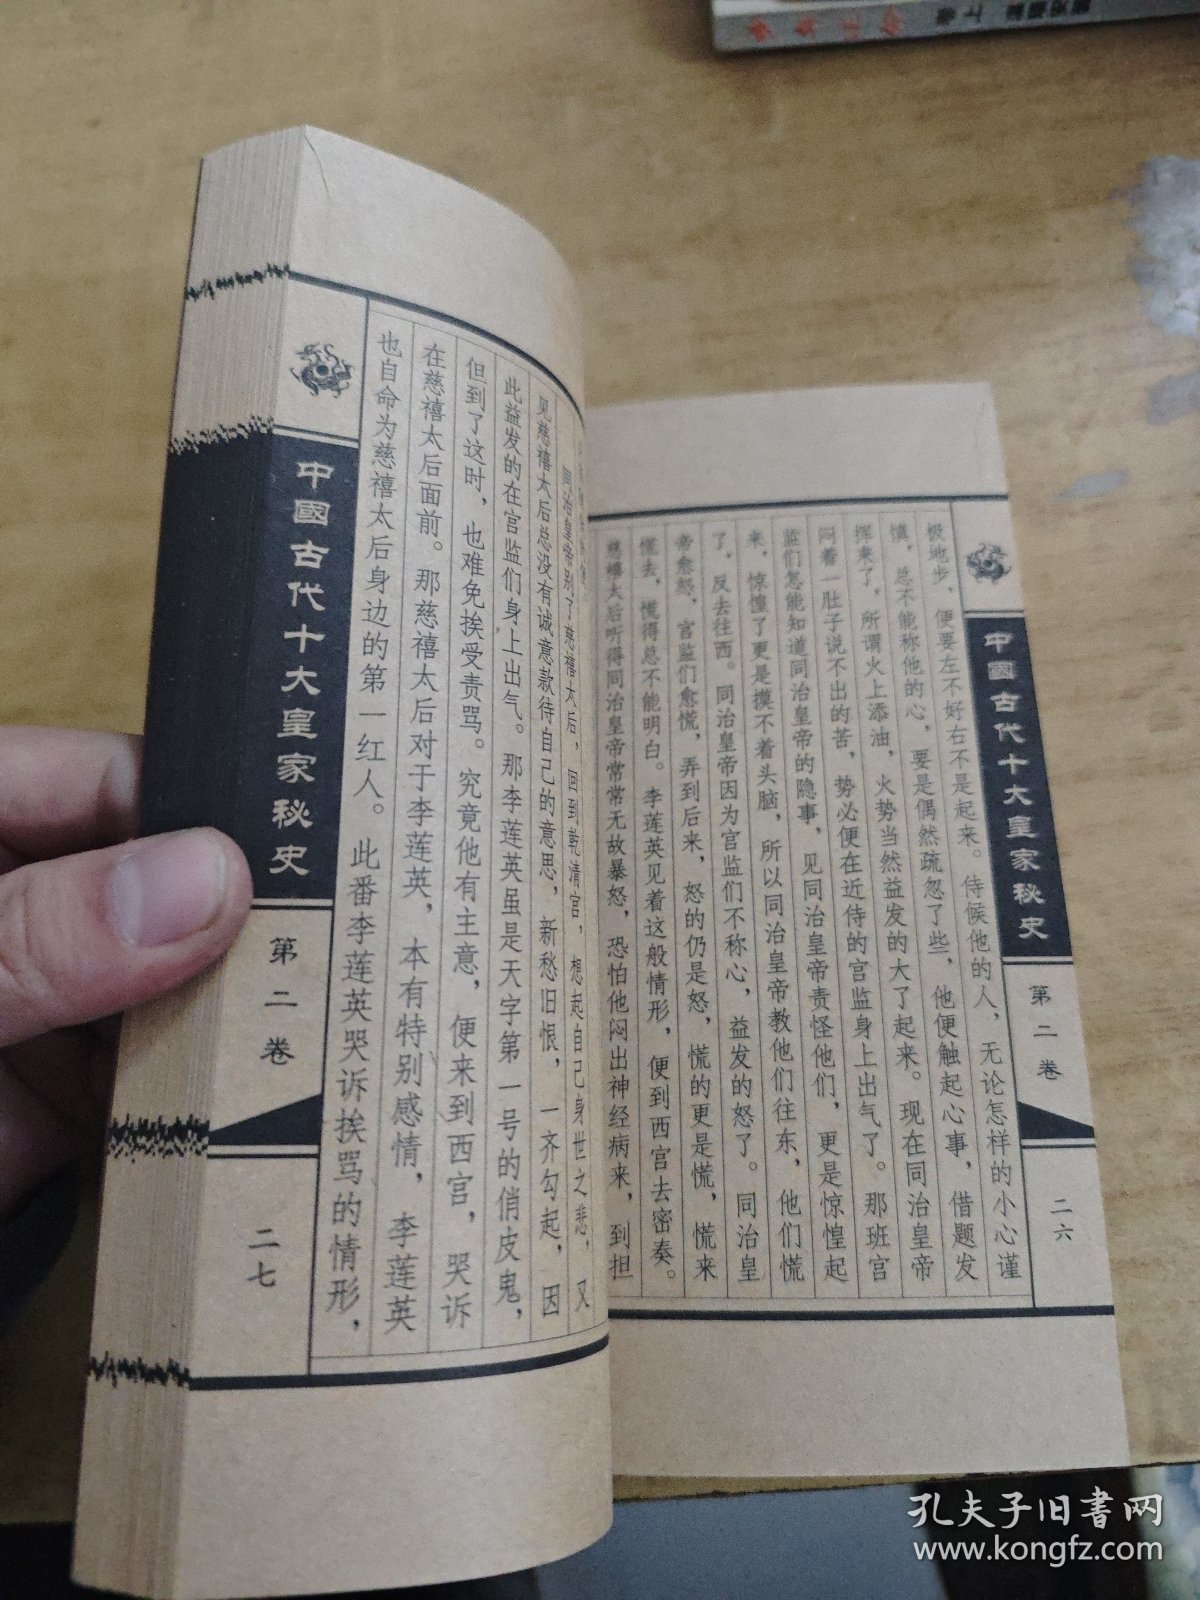 中國古代十大皇家秘史
第二卷
二六
极地步，便要左不好右不是起来。侍候他的人，无论怎样的小心谨
慎，总不能称他的心，要是偶然疏忽了些，他便触起心事，借题发
挥来了，所谓火上添油，火势当然益发的大了起来。现在同治皇帝
闷着一肚子说不出的苦，势必便在近侍的宫监身上出气了。那班宫
监们怎能知道同治皇帝的隐事，见同治皇帝责怪他们，更是惊惶起
来，惊惶了更是摸不着头脑，所以同治皇帝教他们往东，他们慌
了，反去往西。同治皇帝因为宫监们不称心，益发的怒了。同治皇
帝愈怒，宫监们愈慌，弄到后来，怒的仍是怒，慌的更是慌，慌来
慌去，慌得总不能明白。李莲英见着这般情形，便到西宫去密奏。
慈禧太后听得同治皇帝常常无故暴怒，恐怕他闷出神经病来，到担
同治皇帝别了慈禧太后，回到乾清宫，想起自己身世之悲，又
见慈禧太后总没有诚意款待自己的意思，新愁旧恨，一齐勾起，因
此益发的在宫监们身上出气。那李莲英虽是天字第一号的俏皮鬼，
但到了这时，也难免挨受责骂。究竟他有主意，便来到西宫，哭诉
在慈禧太后面前。那慈禧太后对于李莲英，本有特别感情，李莲英
也自命为慈禧太后身边的第一红人。此番李莲英哭诉挨骂的情形，
中國古代十大皇家秘史
第二卷
二七
孔夫子旧书网
www.kongfz.com